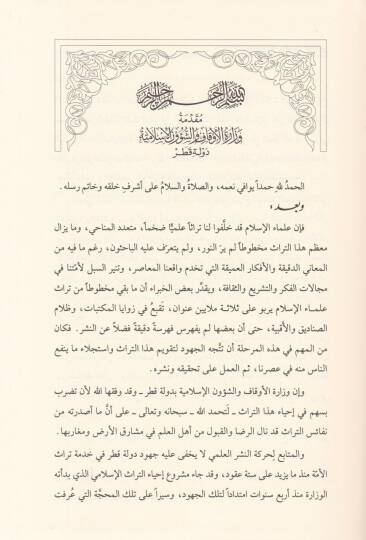 بسم الله الرحمن الرحيم
مقدمة
وزارة الأوقاف والشؤون الإسلامية
دولة قطر
الحمدُ للهِ حمداً يوافي نعمه، والصلاةُ والسلامُ على أشرفِ خلقه وخاتم رسله.
وبعد:
فإن علماء الإسلام قد خلَّفوا لنا تراثاً علميّاً ضخماً، متعدد المناحي، وما يزال
معظم هذا التراث مخطوطاً لم يرَ النور، ولم يتعرّف عليه الباحثون، رغم ما فيه من
المعاني الدقيقة والأفكار العميقة التي تخدم واقعنا المعاصر، وتنير السبل لأمّتنا في
مجالات الفكر والتشريع والثقافة، ويقدّر بعض الخبراء أن ما بقي مخطوطاً من تراث
علماء الإسلام يربو على ثلاثة ملايين عنوان، تقبعُ في زوايا المكتبات، وظلام
الصناديق والأقبية، حتى أن بعضها لم يفهرس فهرسةً دقيقةً فضلاً عن النشر. فكان
من المهم في هذه المرحلة أن تتَّجه الجهود لتقويم هذا التراث واستجلاء ما ينفع
الناس منه في عصرنا، ثم العمل على تحقيقه ونشره.
وإن وزارة الأوقاف والشؤون الإسلامية بدولة قطر ـ وقد وفقها الله لأن تضرب
بسهم في إحياء هذا التراث ـ لَتحمد الله ـ سبحانه وتعالى ـ على أنَّ ما أصدرته من
نفائس التراث قد نال الرضا والقبول من أهل العلم في مشارق الأرض ومغاربها.
والمتابع لحركة النشر العلمي لا يخفى عليه جهود دولة قطر في خدمة تراث
الأمّة منذ ما يزيد على ستة عقود، وقد جاء مشروع إحياء التراث الإسلامي الذي بدأته
الوزارة منذ أربع سنوات امتداداً لتلك الجهود، وسيراً على تلك المحجَّة التي عُرفت